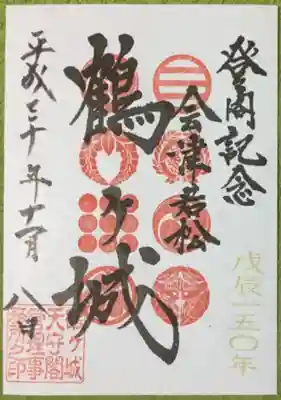 登閣記念
会津若松
鶴ヶ城
平成三十年十一月八日
戊辰一五〇年
鶴ヶ城
天守閣